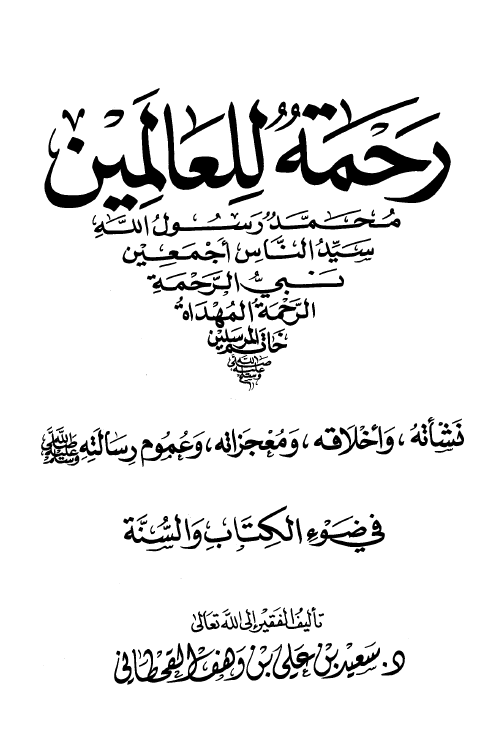 رَحْمَةٌ لِلْعَالَمِيْن
مُحَمَّدٌ رَسُولُ اللَّهِ
سَيِّدُ النَّاسِ أَجْمَعِين
نَبِيُّ الرَّحْمَةِ
الرَّحْمَةُ الْمُهْدَاةُ
خَاتَمُ المُرْسَلِين
صلى الله عليه وسلم
نَشْأَتُهُ، وَأَخْلَاقُه، وَمُعْجِزَاتُه، وَعُمُوم رِسَالَتِهِ ﷺ
في ضَوْءِ الكِتَابِ وَالسُّنَّة
تأليف الفقير إلى الله تعالى
د. سَعيد بن عَلي بن وَهف القحطاني